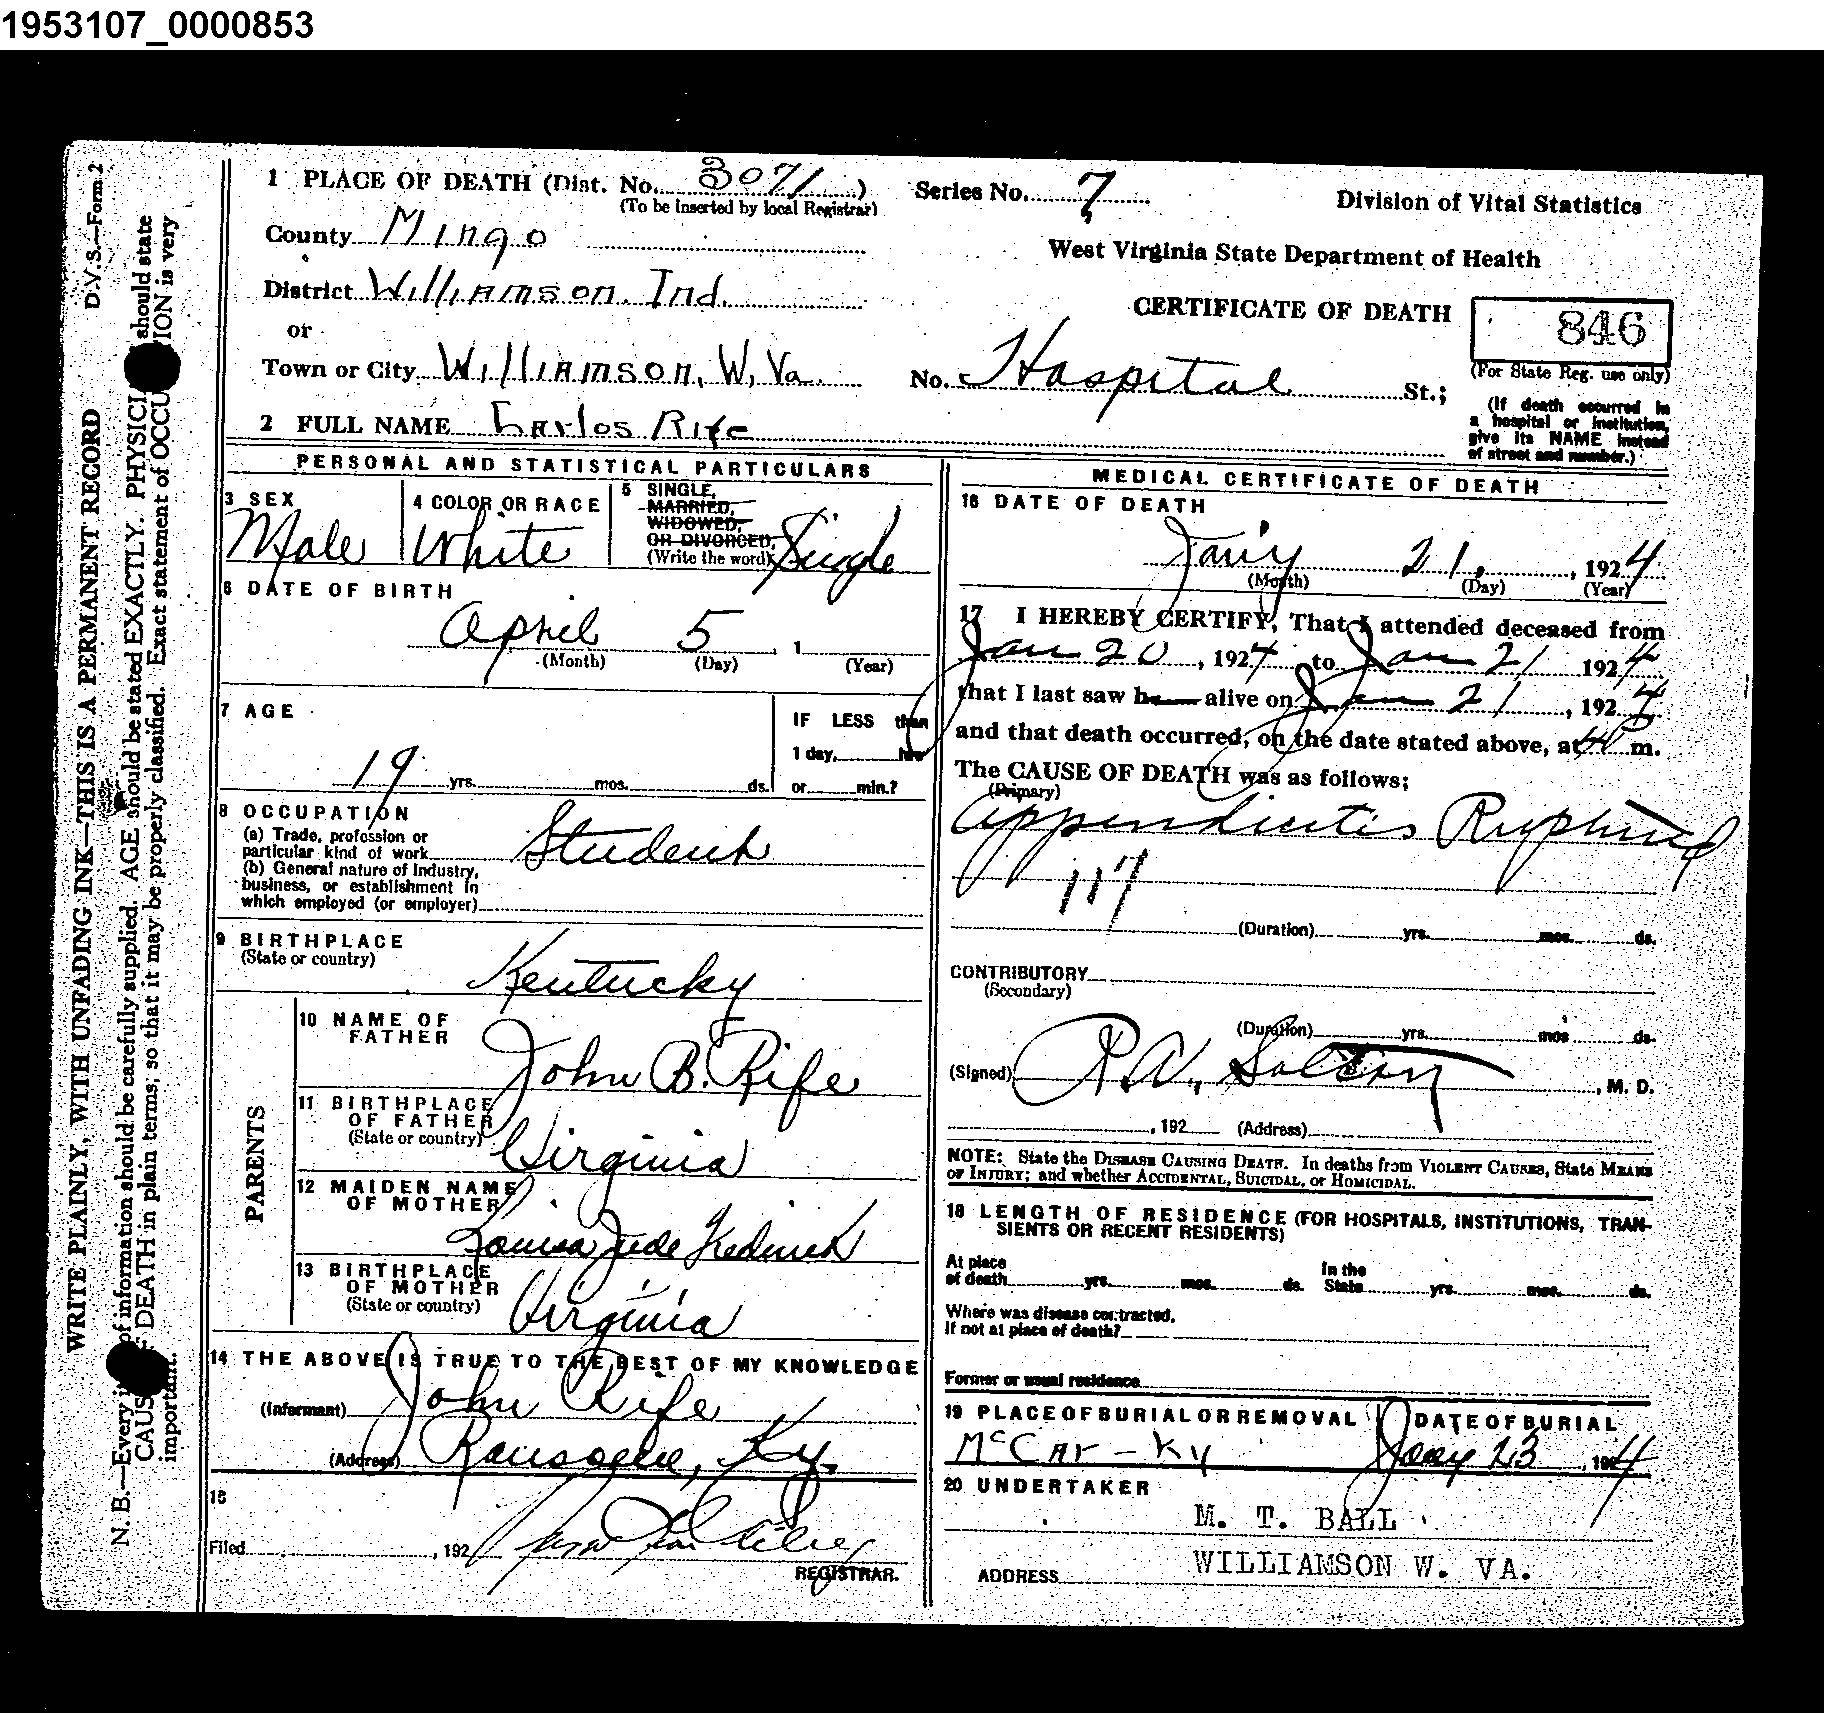 1953107_0000853
D.V.S.—Form 2
WRITE PLAINLY, WITH UNFADING INK—THIS IS A PERMANENT RECORD
N. B.—Every of information should be carefully supplied. AGE should be stated EXACTLY. PHYSICI should state
CAUS DEATH in plain terms, so that it may be properly classified. Exact statement of OCCU ION is very
important.
1 PLACE OF DEATH (Dist. No. 3071 )
(To be inserted by local Registrar)
Series No. 7
Division of Vital Statistics
County Mingo
West Virginia State Department of Health
District Williamson Ind.
CERTIFICATE OF DEATH
846
(For State Reg. use only)
or
Town or City Williamson, W, Va.
No. Hospital St.;
(If death occurred in
a hospital or institution,
give its NAME instead
of street and number.)
2 FULL NAME Carlos Rife
PERSONAL AND STATISTICAL PARTICULARS
3 SEX
Male
4 COLOR OR RACE
White
5 SINGLE,
MARRIED,
WIDOWED,
OR DIVORCED,
(Write the word) Single
6 DATE OF BIRTH
April 5 , 1
(Month) (Day) (Year)
7 AGE
19 yrs. mos. ds.
IF LESS than
1 day, hrs
or min.?
8 OCCUPATION
(a) Trade, profession or
particular kind of work Student
(b) General nature of Industry,
business, or establishment in
which employed (or employer)
9 BIRTHPLACE
(State or country)
Kentucky
PARENTS
10 NAME OF
FATHER
John B. Rife
11 BIRTHPLACE
OF FATHER
(State or country)
Virginia
12 MAIDEN NAME
OF MOTHER
Louisa Jude
13 BIRTHPLACE
OF MOTHER
(State or country)
Virginia
14 THE ABOVE IS TRUE TO THE BEST OF MY KNOWLEDGE
(Informant) John Rife
(Address) Ky.
15
Filed , 192
REGISTRAR.
MEDICAL CERTIFICATE OF DEATH
16 DATE OF DEATH
Jan'y 21, , 1924
(Month) (Day) (Year)
17 I HEREBY CERTIFY, That I attended deceased from
Jan 20 , 1924 to Jan 21 1924
that I last saw h alive on Jan 21 , 1924
and that death occurred, on the date stated above, at m.
The CAUSE OF DEATH was as follows:
(Primary)
Appendicitis Ruptured
117
(Duration) yrs. mos. ds.
CONTRIBUTORY
(Secondary)
(Duration) yrs. mos ds.
(Signed) , M. D.
, 192 (Address)
NOTE: State the DISEASE CAUSING DEATH. In deaths from VIOLENT CAUSES, State MEANS
OF INJURY; and whether ACCIDENTAL, SUICIDAL, or HOMICIDAL.
18 LENGTH OF RESIDENCE (FOR HOSPITALS, INSTITUTIONS, TRAN-
SIENTS OR RECENT RESIDENTS)
At place
of death yrs. mos. ds.
In the
State yrs. mos. ds.
Where was disease contracted,
If not at place of death?
Former or usual residence
19 PLACE OF BURIAL OR REMOVAL
McCar - Ky
DATE OF BURIAL
Jany 23 , 1924
20 UNDERTAKER
M. T. BALL
ADDRESS WILLIAMSON W. VA.